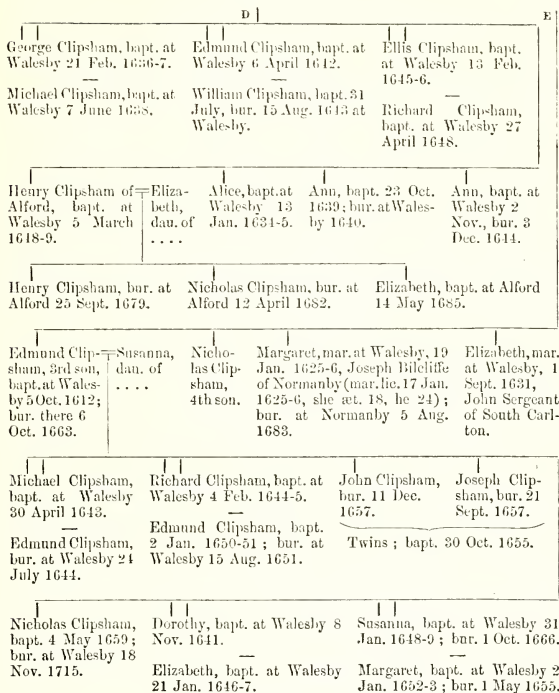 D
E
George Clipsham, bapt. at
Walesby 21 Feb. 1636-7.
—
Michael Clipsham, bapt. at
Walesby 7 June 1638.
Edmund Clipsham, bapt. at
Walesby 6 April 1642.
—
William Clipsham, bapt. 31
July, bur. 15 Aug. 1643 at
Walesby.
Ellis Clipsham, bapt.
at Walesby 13 Feb.
1645-6.
—
Richard Clipsham,
bapt. at Walesby 27
April 1648.
Henry Clipsham of
Alford, bapt. at
Walesby 5 March
1648-9.
Eliza-
beth,
dau. of
. . . .
Alice, bapt. at
Walesby 13
Jan. 1634-5.
Ann, bapt. 23 Oct.
1639; bur. at Wales-
by 1640.
Ann, bapt. at
Walesby 2
Nov., bur. 3
Dec. 1644.
Henry Clipsham, bur. at
Alford 25 Sept. 1679.
Nicholas Clipsham, bur. at
Alford 12 April 1682.
Elizabeth, bapt. at Alford
14 May 1685.
Edmund Clip-
sham, 3rd son,
bapt. at Wales-
by 5 Oct. 1612;
bur. there 6
Oct. 1663.
Susanna,
dau. of
. . . .
Nicho-
las Clip-
sham,
4th son.
Margaret, mar. at Walesby, 19
Jan. 1625-6, Joseph Bilcliffe
of Normanby (mar. lic. 17 Jan.
1625-6, she æt. 18, he 24);
bur. at Normanby 5 Aug.
1683.
Elizabeth, mar.
at Walesby, 1
Sept. 1631,
John Sergeant
of South Carl-
ton.
Michael Clipsham,
bapt. at Walesby
30 April 1643.
—
Edmund Clipsham,
bur. at Walesby 24
July 1644.
Richard Clipsham, bapt. at
Walesby 4 Feb. 1644-5.
—
Edmund Clipsham, bapt.
2 Jan. 1650-51; bur. at
Walesby 15 Aug. 1651.
John Clipsham,
bur. 11 Dec.
1657.
Joseph Clip-
sham, bur. 21
Sept. 1657.
Twins; bapt. 30 Oct. 1655.
Nicholas Clipsham,
bapt. 4 May 1659;
bur. at Walesby 18
Nov. 1715.
Dorothy, bapt. at Walesby 8
Nov. 1641.
—
Elizabeth, bapt. at Walesby
21 Jan. 1646-7.
Susanna, bapt. at Walesby 31
Jan. 1648-9; bur. 1 Oct. 1666.
—
Margaret, bapt. at Walesby 2
Jan. 1652-3; bur. 1 May 1655.